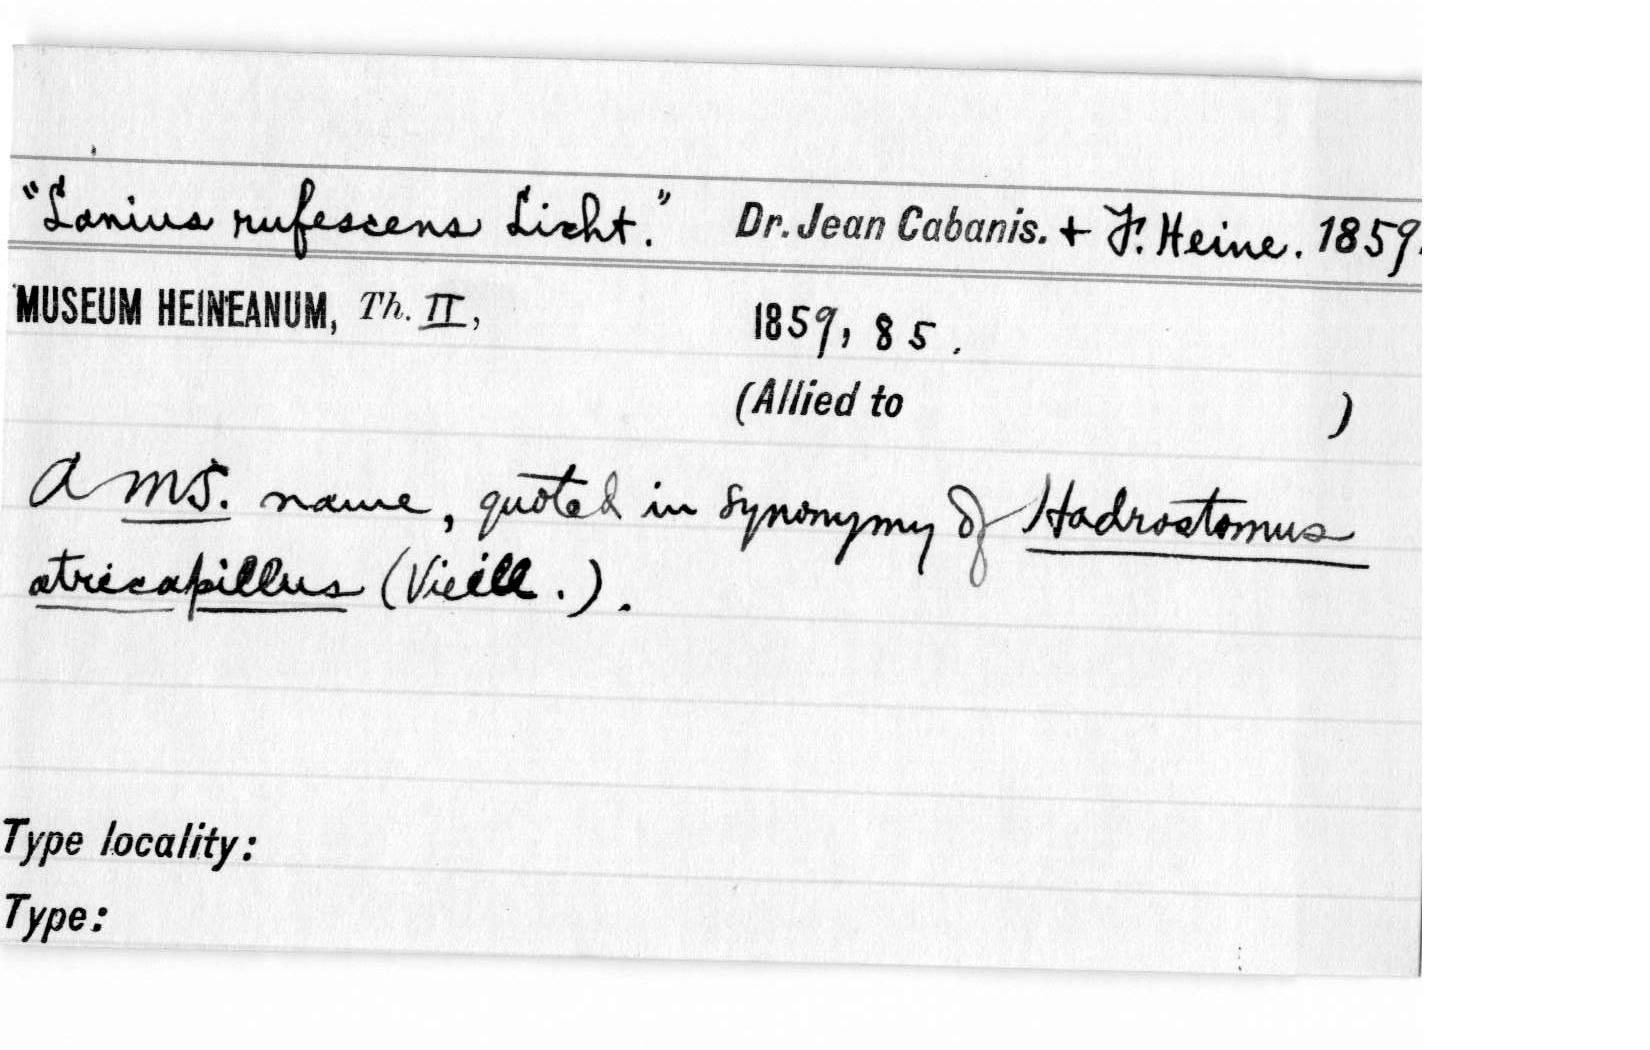 "Lanius rufescens Licht." Dr. Jean Cabanis. + F. Heine. 1859.
MUSEUM HEINEANUM, Th. II, 1859, 85.
(Allied to )
A MS. name, quoted in synonymy of Hadrostomus
atricapillus (Vieill.).
Type locality:
Type: